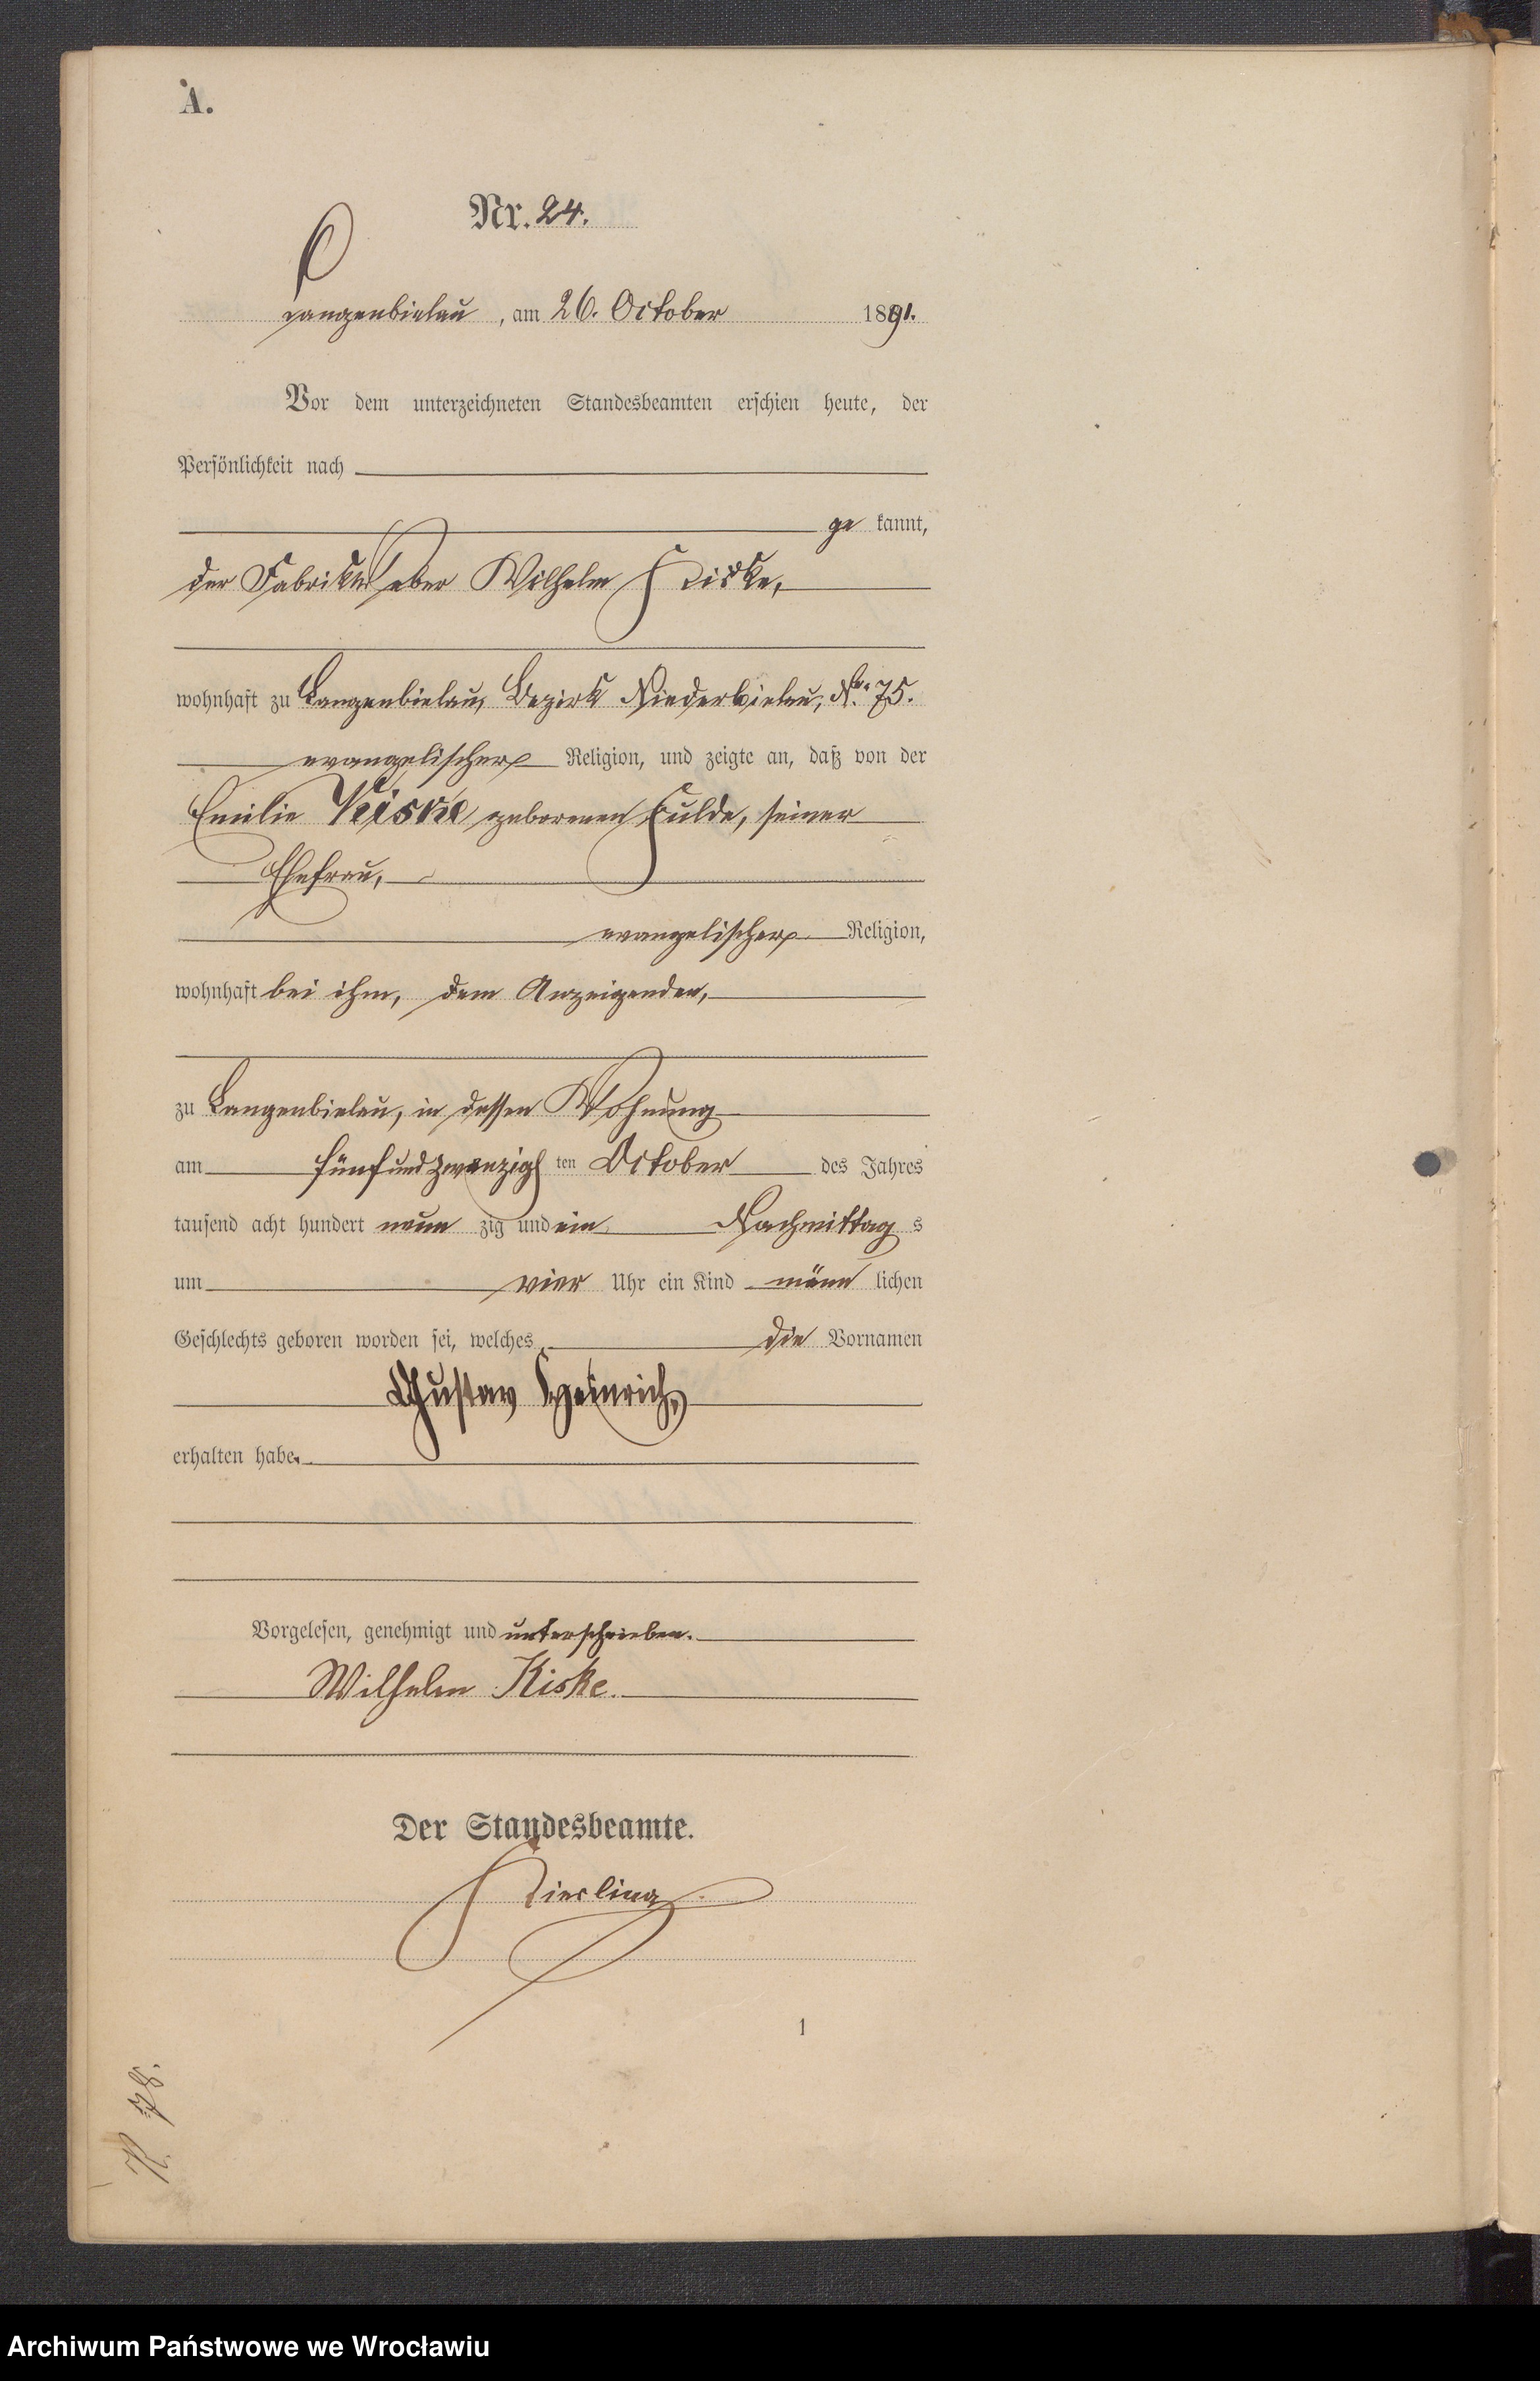 A.
Nr. 24.
Langenbielau, am 26. October 1891.
Vor dem unterzeichneten Standesbeamten erschien heute, der
Persönlichkeit nach
ge kannt,
der Fabrikweber Wilhelm Kiske,
wohnhaft zu Langenbielau, Bezirk Niederbielau, No. 75.
evangelischer Religion, und zeigte an, daß von der
Emilie Kiske geborenen Fulde, seiner
Ehefrau,
evangelischer Religion,
wohnhaft bei ihm, dem Anzeigenden,
zu Langenbielau, in dessen Wohnung
am fünfundzwanzigsten October des Jahres
tausend acht hundert neun zig und ein Nachmittag s
um vier Uhr ein Kind männ lichen
Geschlechts geboren worden sei, welches die Vornamen
Gustav Heinrich,
erhalten habe.
Vorgelesen, genehmigt und unterschrieben.
Wilhelm Kiske.
Der Standesbeamte.
1
Archiwum Państwowe we Wrocławiu